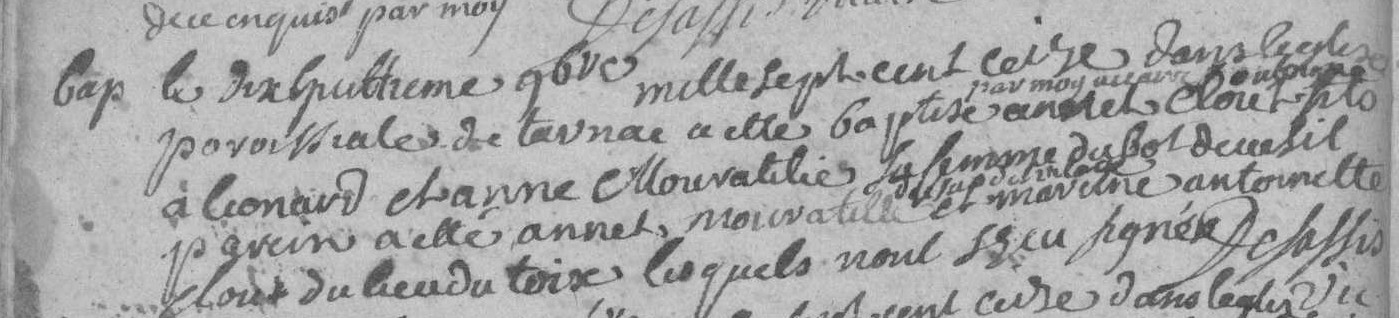 dece enquis par moy Desassis vicaire
bap le dixhuittieme 9bre mille sept cent ceize dans leglise
paroissiale de tarnac a este baptise par moy vicaire annet Clout fils
à leonard et anne Mouratilie sa femme du Bot
parein a este annet mouratille et mareine antoinette
Clout du lieu du toix lesquels nont sceu signér Desassis
cent ceize dans legli Vic